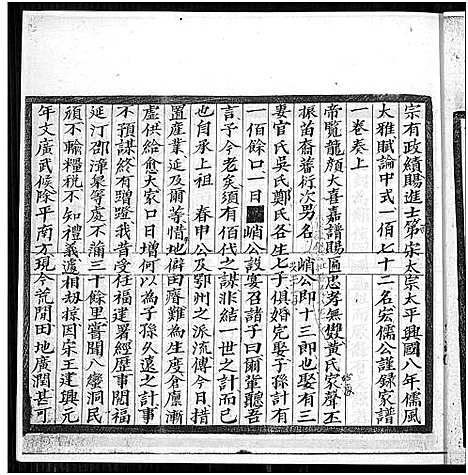 宗有政績賜進士第宋太宗太平興國八年儒風
大雅賦論中式一佰七十二名宏儒公謹錄家譜
一卷奏上
帝覽龍顏大喜嘉譜賜匾忠孝無雙黃氏家聲丕
振苗裔蕃衍次男名 峭公即十三郎也娶有三
妻官氏吳氏鄭氏各生七子俱婚完娶子孫計有
一佰餘口一日 峭公設宴召諸子曰爾輩聽吾
言予今老矣須有佰代之謀非結一世之計而已
也自承上祖 春申公及鄂州之派流傳今日措
置產業延及爾等惜地僻田瘠難為生度倉廩漸
虛供給愈大家口日增何以為子孫久遠之計
不預謀終有蹭蹬我昔受任福建署經歷事聞福
延汀邵漳泉等處不滿三十餘里嘗聞八蠻洞民
頑不輸糧稅不知禮義遞相劫掠因宋王建興元
年文廣武候除平南方現今荒閒田地廣濶甚可